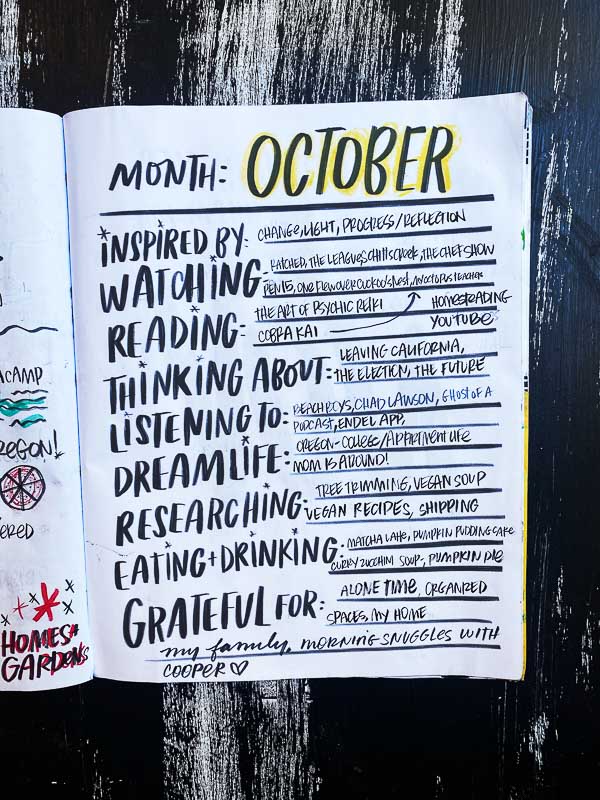 ACAMP
REGON!
ERED
HOMES*
GARDENS
MONTH: OCTOBER
INSPIRED BY: CHANGE, LIGHT, PROGRESS/REFLECTION
WATCHING: RATCHED, THE LEAGUE, SCHITTS CREEK, THE CHEF SHOW
PEN15, ONE FLEW OVER CUCKOOS NEST, MY OCTOPUS TEACHER
READING: THE ART OF PSYCHIC REIKI HOMESTEADING
COBRA KAI YOUTUBE
THINKING ABOUT: LEAVING CALIFORNIA,
THE ELECTION, THE FUTURE
LISTENING TO: BEACH BOYS, CHAD LAWSON, GHOST OF A
PODCAST, ENDEL APP,
DREAM LIFE: OREGON - COLLEGE/APPARTMENT LIFE
MOM IS AROUND!
RESEARCHING: TREE TRIMMING, VEGAN SOUP
VEGAN RECIPES, SHIPPING
EATING+DRINKING: MATCHA LATTE, PUMPKIN PUDDING CAKE
CURRY ZUCCHINI SOUP, PUMPKIN PIE
GRATEFUL FOR: ALONE TIME, ORGANIZED
SPACES, MY HOME
my family, MORNING SNUGGLES WITH
COOPER ♡